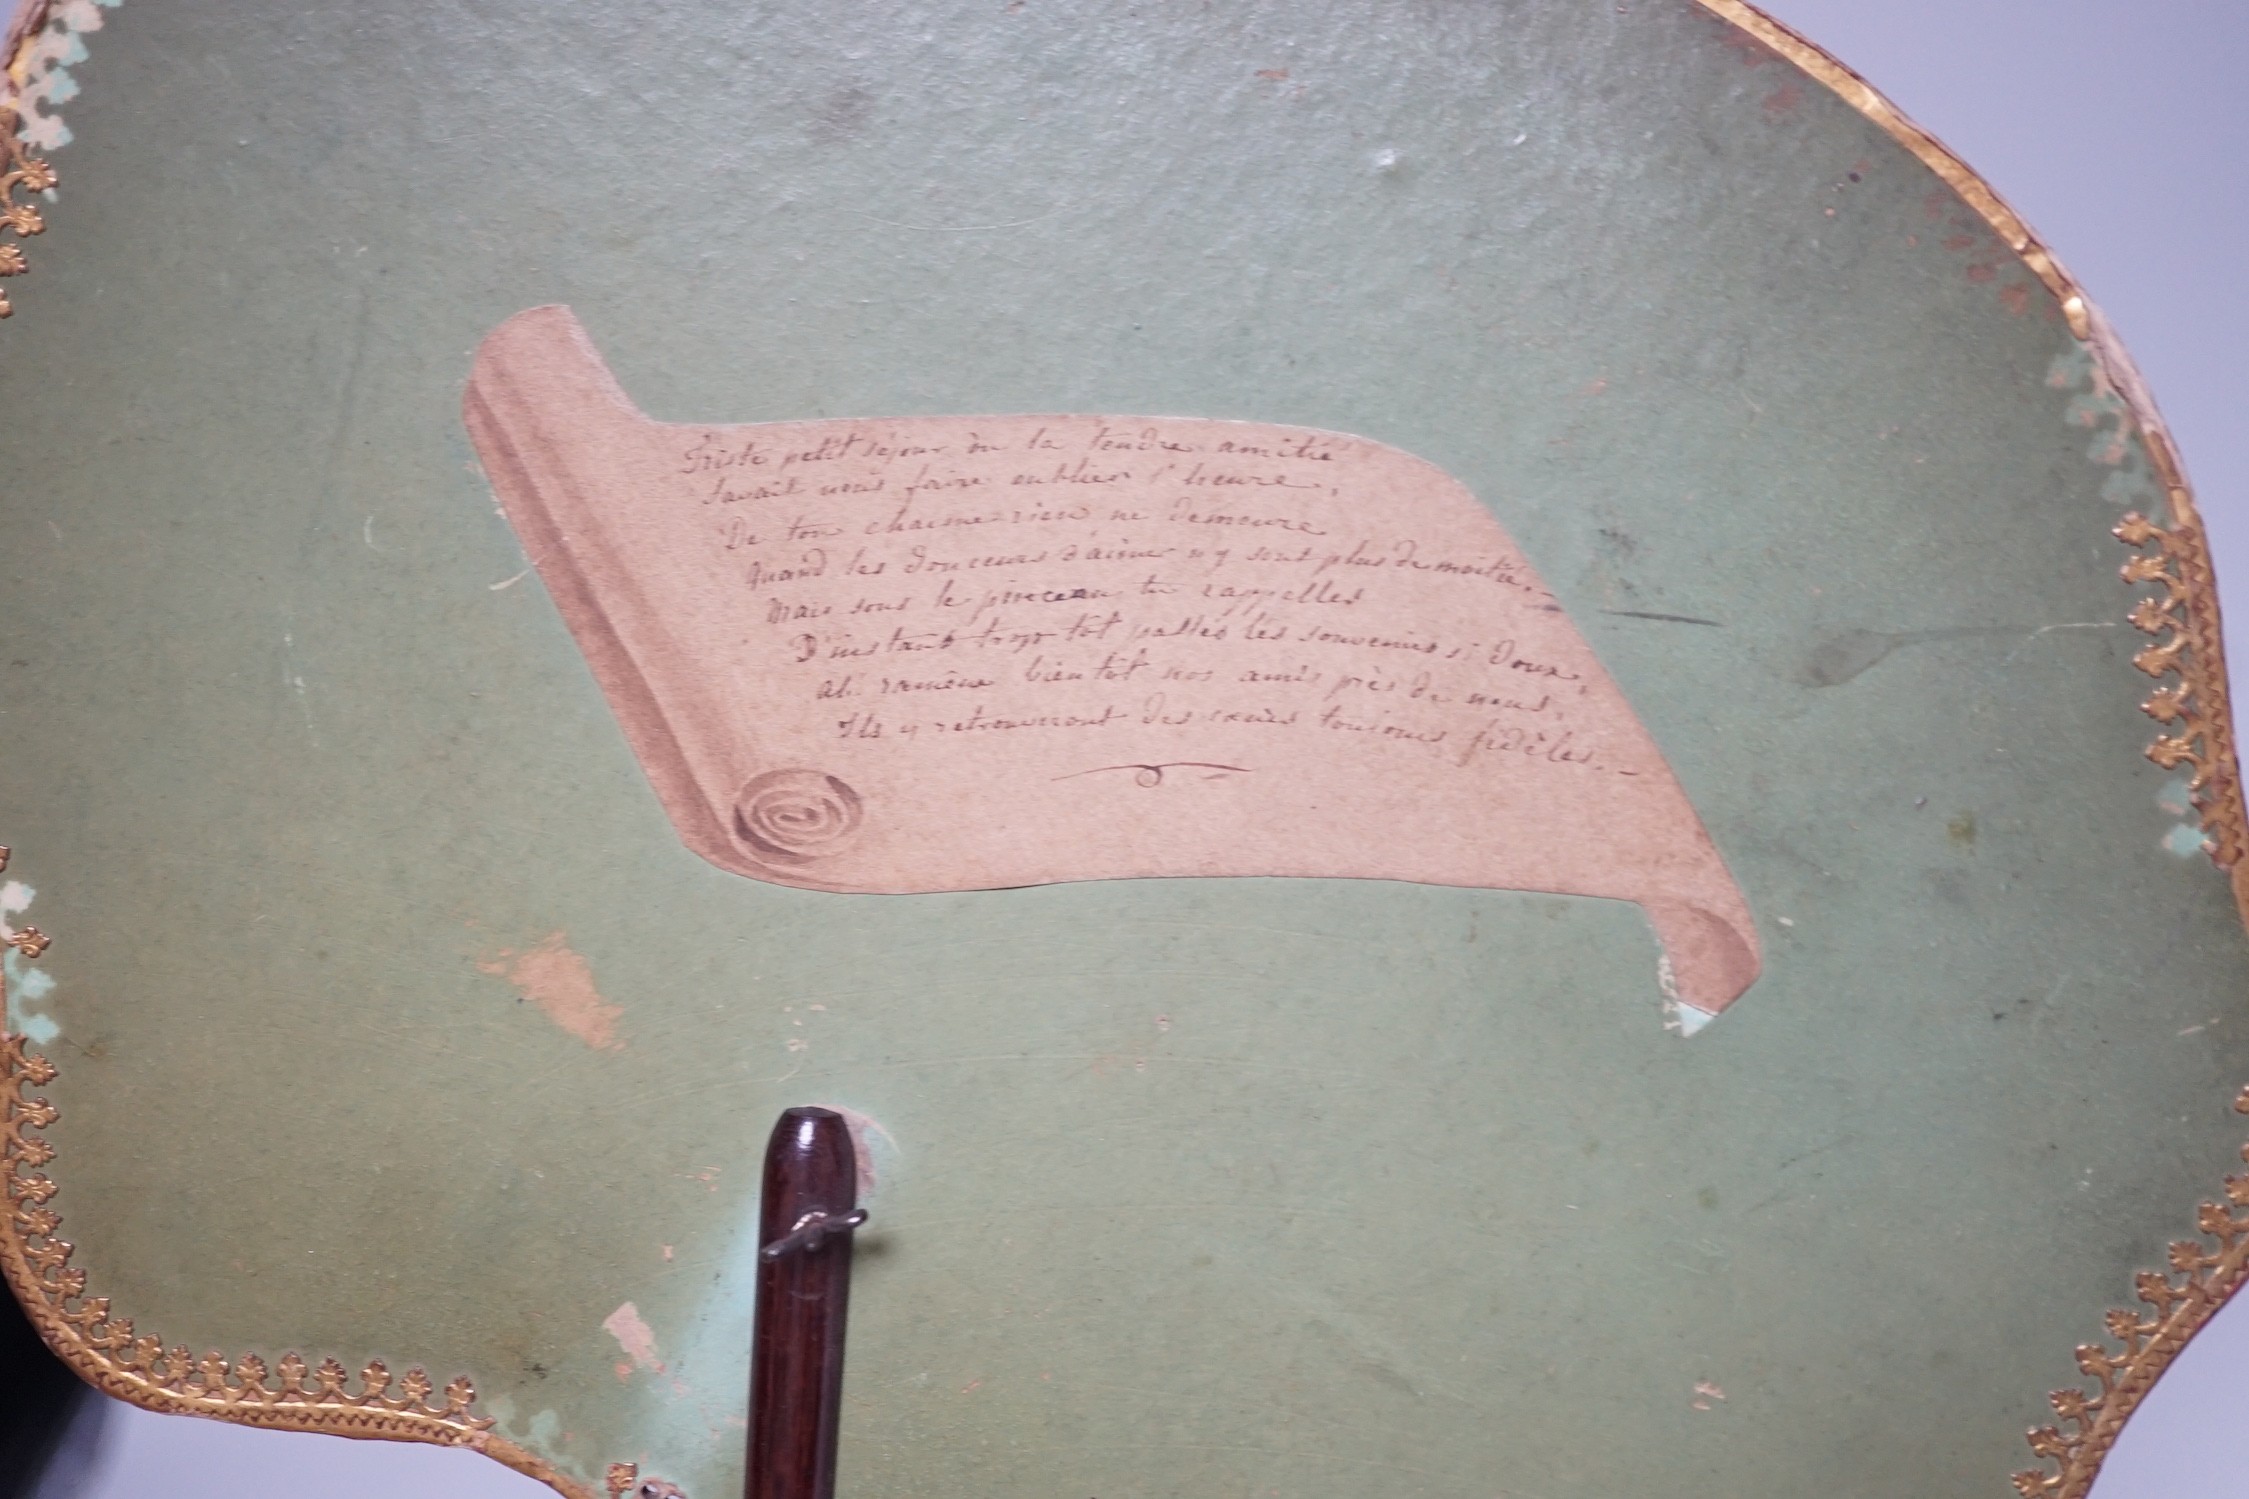 Triste petit séjour où la tendre amitié
Savait nous faire oublier l'heure,
De ton charme rien ne demeure
Quand les douceurs d'aimer n'y sont plus de moitié. _
Mais sous le pinceau tu rappelles
D'instans trop tôt passés les souvenirs si doux,
ah! ramène bientôt nos amis près de nous,
Ils y retrouveront des cœurs toujours fidèles. _